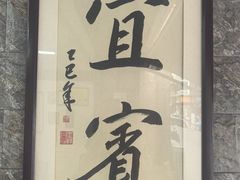 宜賓
乙巳年